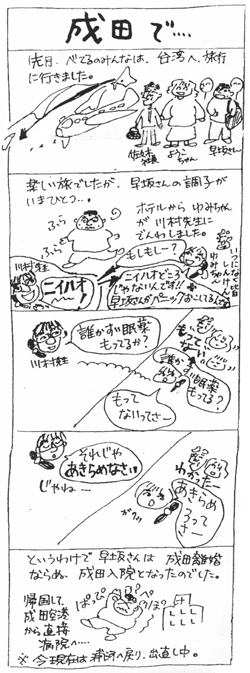 成田で……
先日、べてるのみんなは、台湾へ旅行
に行きました。
佐々木社長
ようこちゃん
早坂さん
楽しい旅でしたが、早坂さんの調子が
いまひとつ…。
ホテルから ゆみちゃん
が 川村先生に
でんわしました。
ふら
ふら
川村先生
もしもしー?
ニイハオ
ー!
ニイハオどころ
じゃないんです!!
早坂さんがパニックおこしてるんです
ゆみちゃん
川村先生
誰かすい眠薬
もってるか?
もって
ないってさー
誰か
すい眠薬
もってる?
もって
ないー。
それじゃ
あきらめなさい
じゃねー
わかっ
たー
あきらめ
ろって
さー
ガクッ
というわけで 早坂さんは 成田離婚
ならぬ、成田入院となったのでした。
帰国して、
成田空港
から直接
病院へ……
ぱっぴ
ぷ
ぺ
ぽ
※ 今現在は 浦河へ戻り、出直し中。